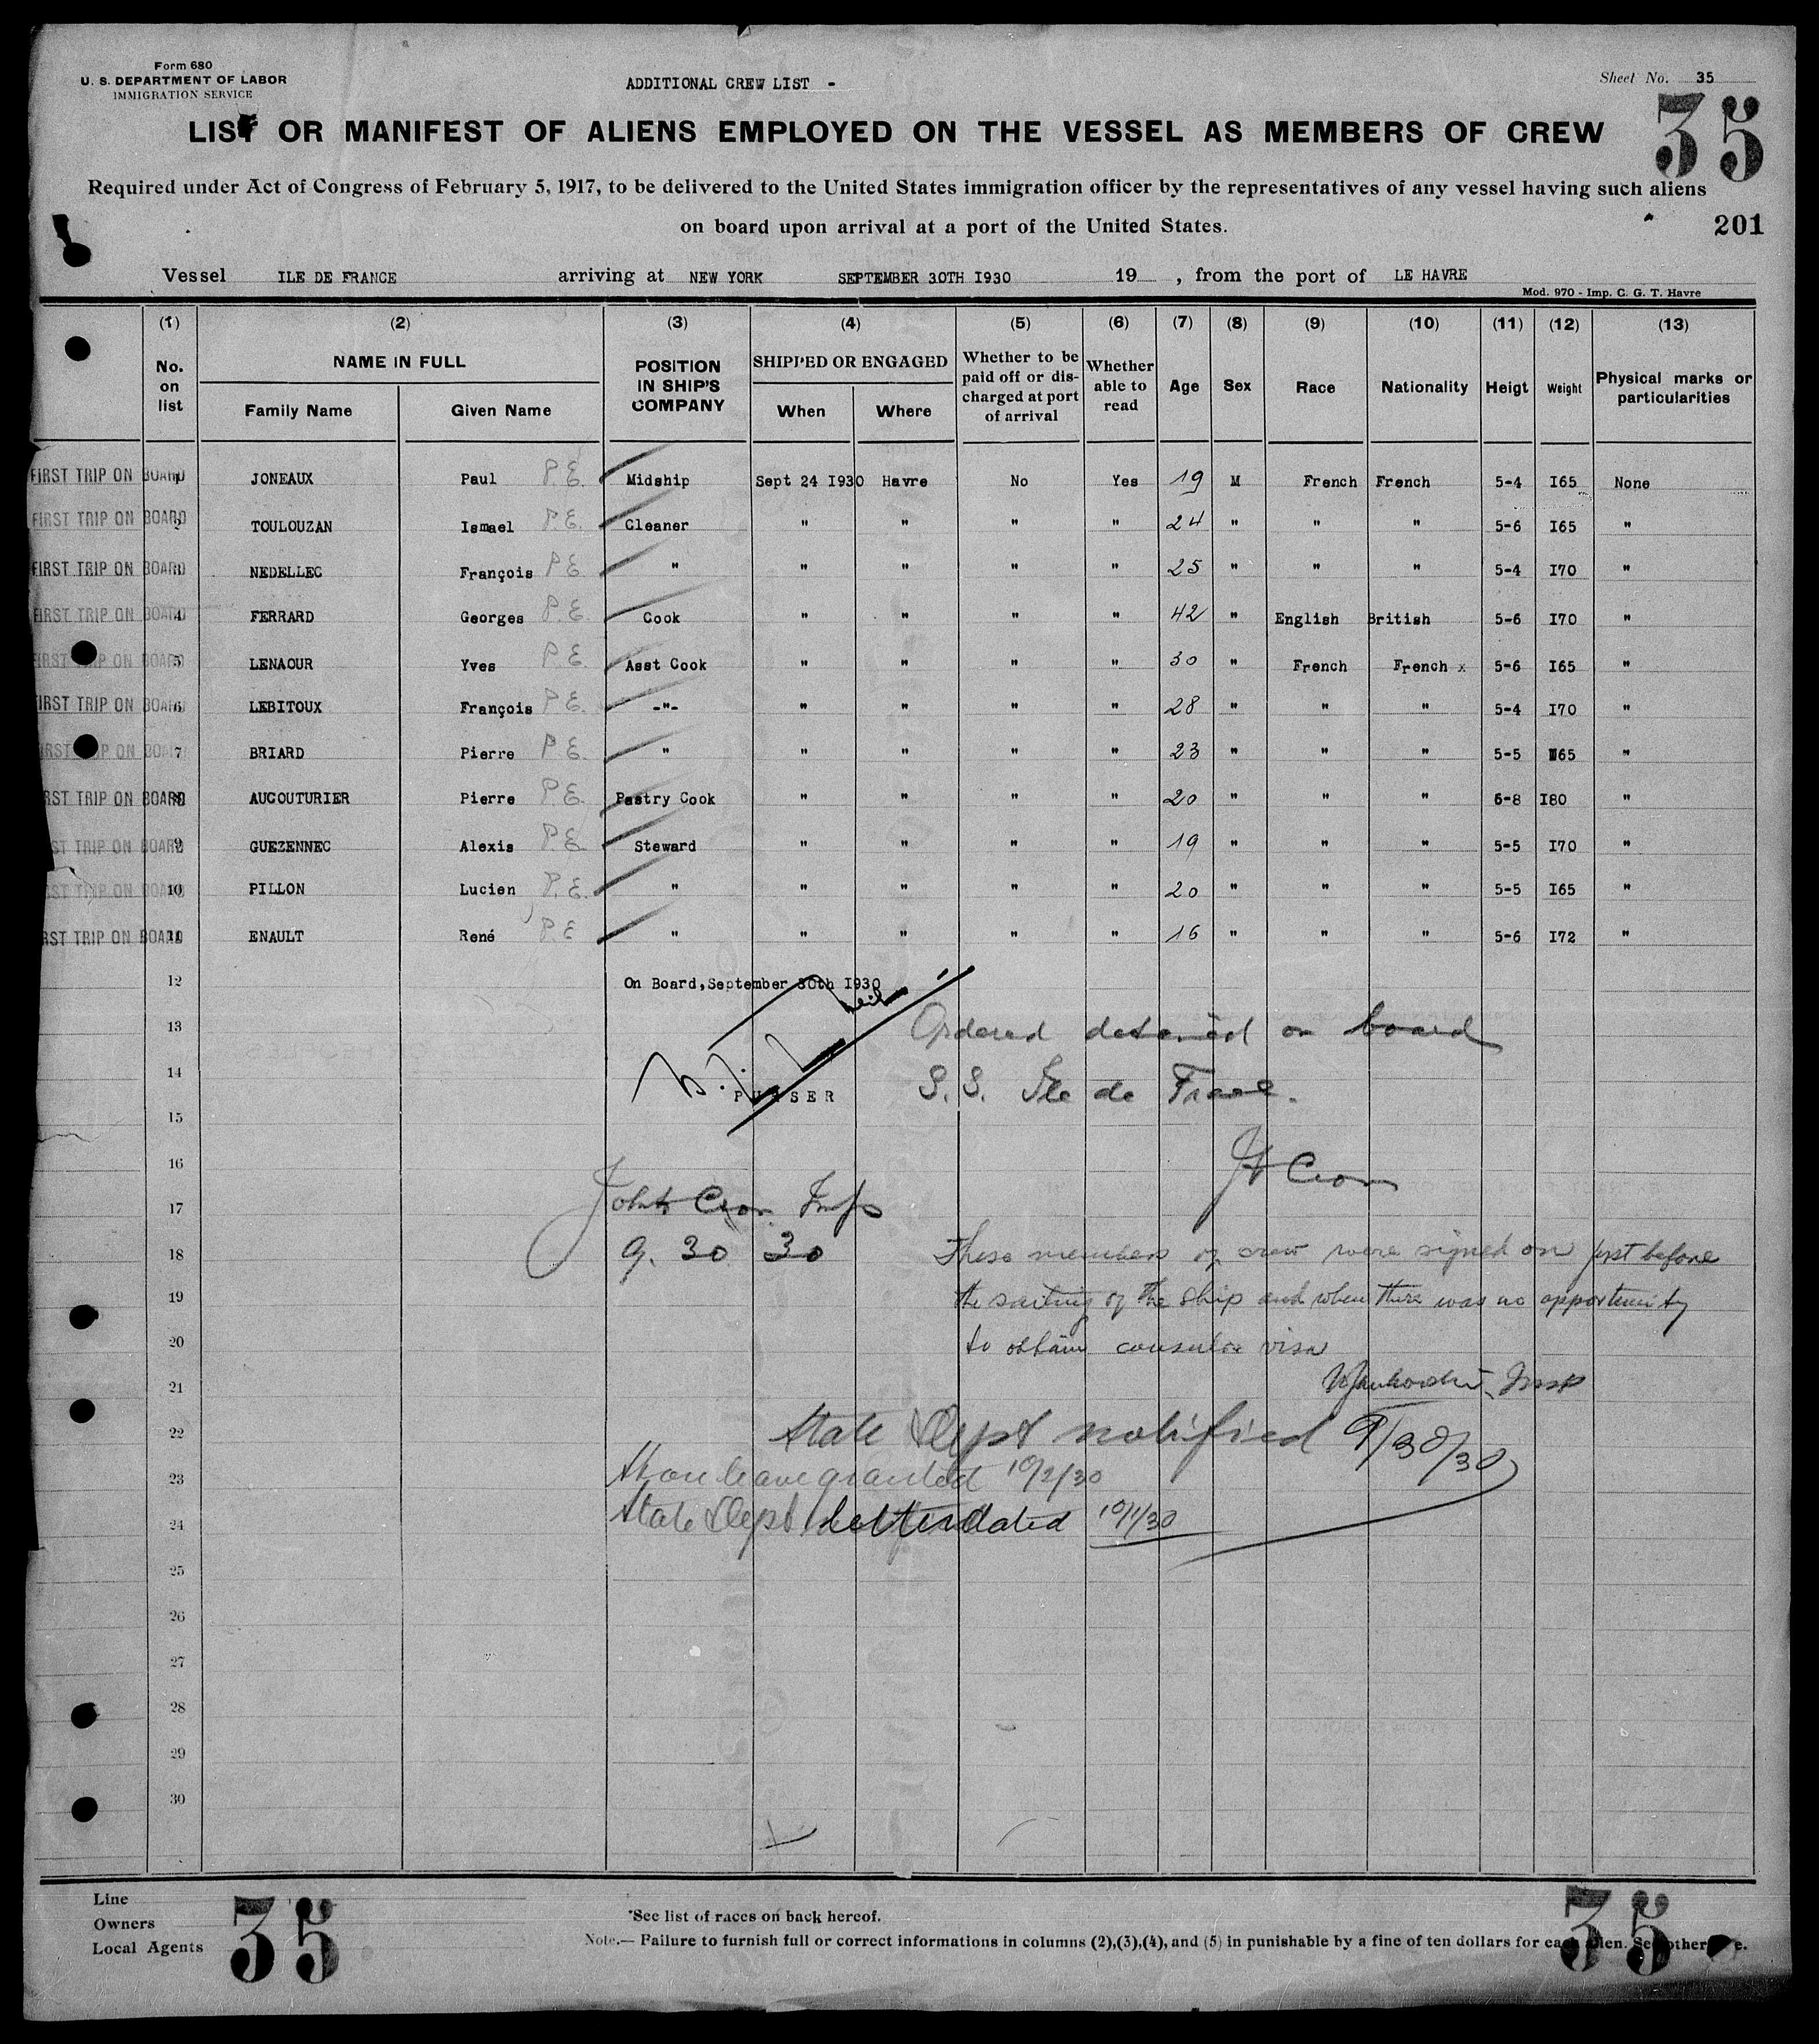 Form 680
U. S. DEPARTMENT OF LABOR
IMMIGRATION SERVICE
ADDITIONAL CREW LIST -
Sheet No. 35
35
LIST OR MANIFEST OF ALIENS EMPLOYED ON THE VESSEL AS MEMBERS OF CREW
Required under Act of Congress of February 5, 1917, to be delivered to the United States immigration officer by the representatives of any vessel having such aliens
on board upon arrival at a port of the United States.
201
Vessel ILE DE FRANCE arriving at NEW YORK SEPTEMBER 30TH I930 19 , from the port of LE HAVRE
Mod. 970 - Imp. C. G. T. Havre
(1) (2) (3) (4) (5) (6) (7) (8) (9) (10) (11) (12) (13)
No. on list NAME IN FULL Family Name Given Name POSITION IN SHIP'S COMPANY SHIPPED OR ENGAGED When Where Whether to be paid off or discharged at port of arrival Whether able to read Age Sex Race Nationality Heigt Weight Physical marks or particularities
FIRST TRIP ON BOARD 1 JONEAUX Paul P.E. Midship Sept 24 I930 Havre No Yes 19 M French French 5-4 I65 None
FIRST TRIP ON BOARD 2 TOULOUZAN Ismael P.E. Cleaner " " " " 24 " " " 5-6 I65 "
FIRST TRIP ON BOARD NEDELLEC François P.E. " " " " " 25 " " " 5-4 I70 "
FIRST TRIP ON BOARD 4 FERRARD Georges P.E. Cook " " " " 42 " English British 5-6 I70 "
FIRST TRIP ON BOARD 5 LENAOUR Yves P.E. Asst Cook " " " " 30 " French French x 5-6 I65 "
FIRST TRIP ON BOARD 6 LEBITOUX François P.E. -"- " " " " 28 " " " 5-4 I70 "
FIRST TRIP ON BOARD 7 BRIARD Pierre P.E. " " " " " 23 " " " 5-5 I65 "
FIRST TRIP ON BOARD 8 AUCOUTURIER Pierre P.E. Pastry Cook " " " " 20 " " " 6-8 I80 "
FIRST TRIP ON BOARD 9 GUEZENNEC Alexis P.E. Steward " " " " 19 " " " 5-5 I70 "
FIRST TRIP ON BOARD 10 PILLON Lucien P.E. " " " " " 20 " " " 5-5 I65 "
FIRST TRIP ON BOARD 11 ENAULT René P.E. " " " " " 16 " " " 5-6 I72 "
12 On Board, September 30th I930
13 Ordered detained on board
14 S.S. Ile de France.
PURSER
15
16
17 Insp
18 9. 30 30 These members of crew were signed on just before
19 the sailing of the ship and when there was no opportunity
20 to obtain consular visa
21 Insp
22 State Dept notified 9/30/30
23 Shore leave granted 10/2/30
24 State Dept letter dated 10/1/30
25
26
27
28
29
30
Line
Owners
Local Agents
35
*See list of races on back hereof.
Note.— Failure to furnish full or correct informations in columns (2),(3),(4), and (5) in punishable by a fine of ten dollars for each alien. See other
35